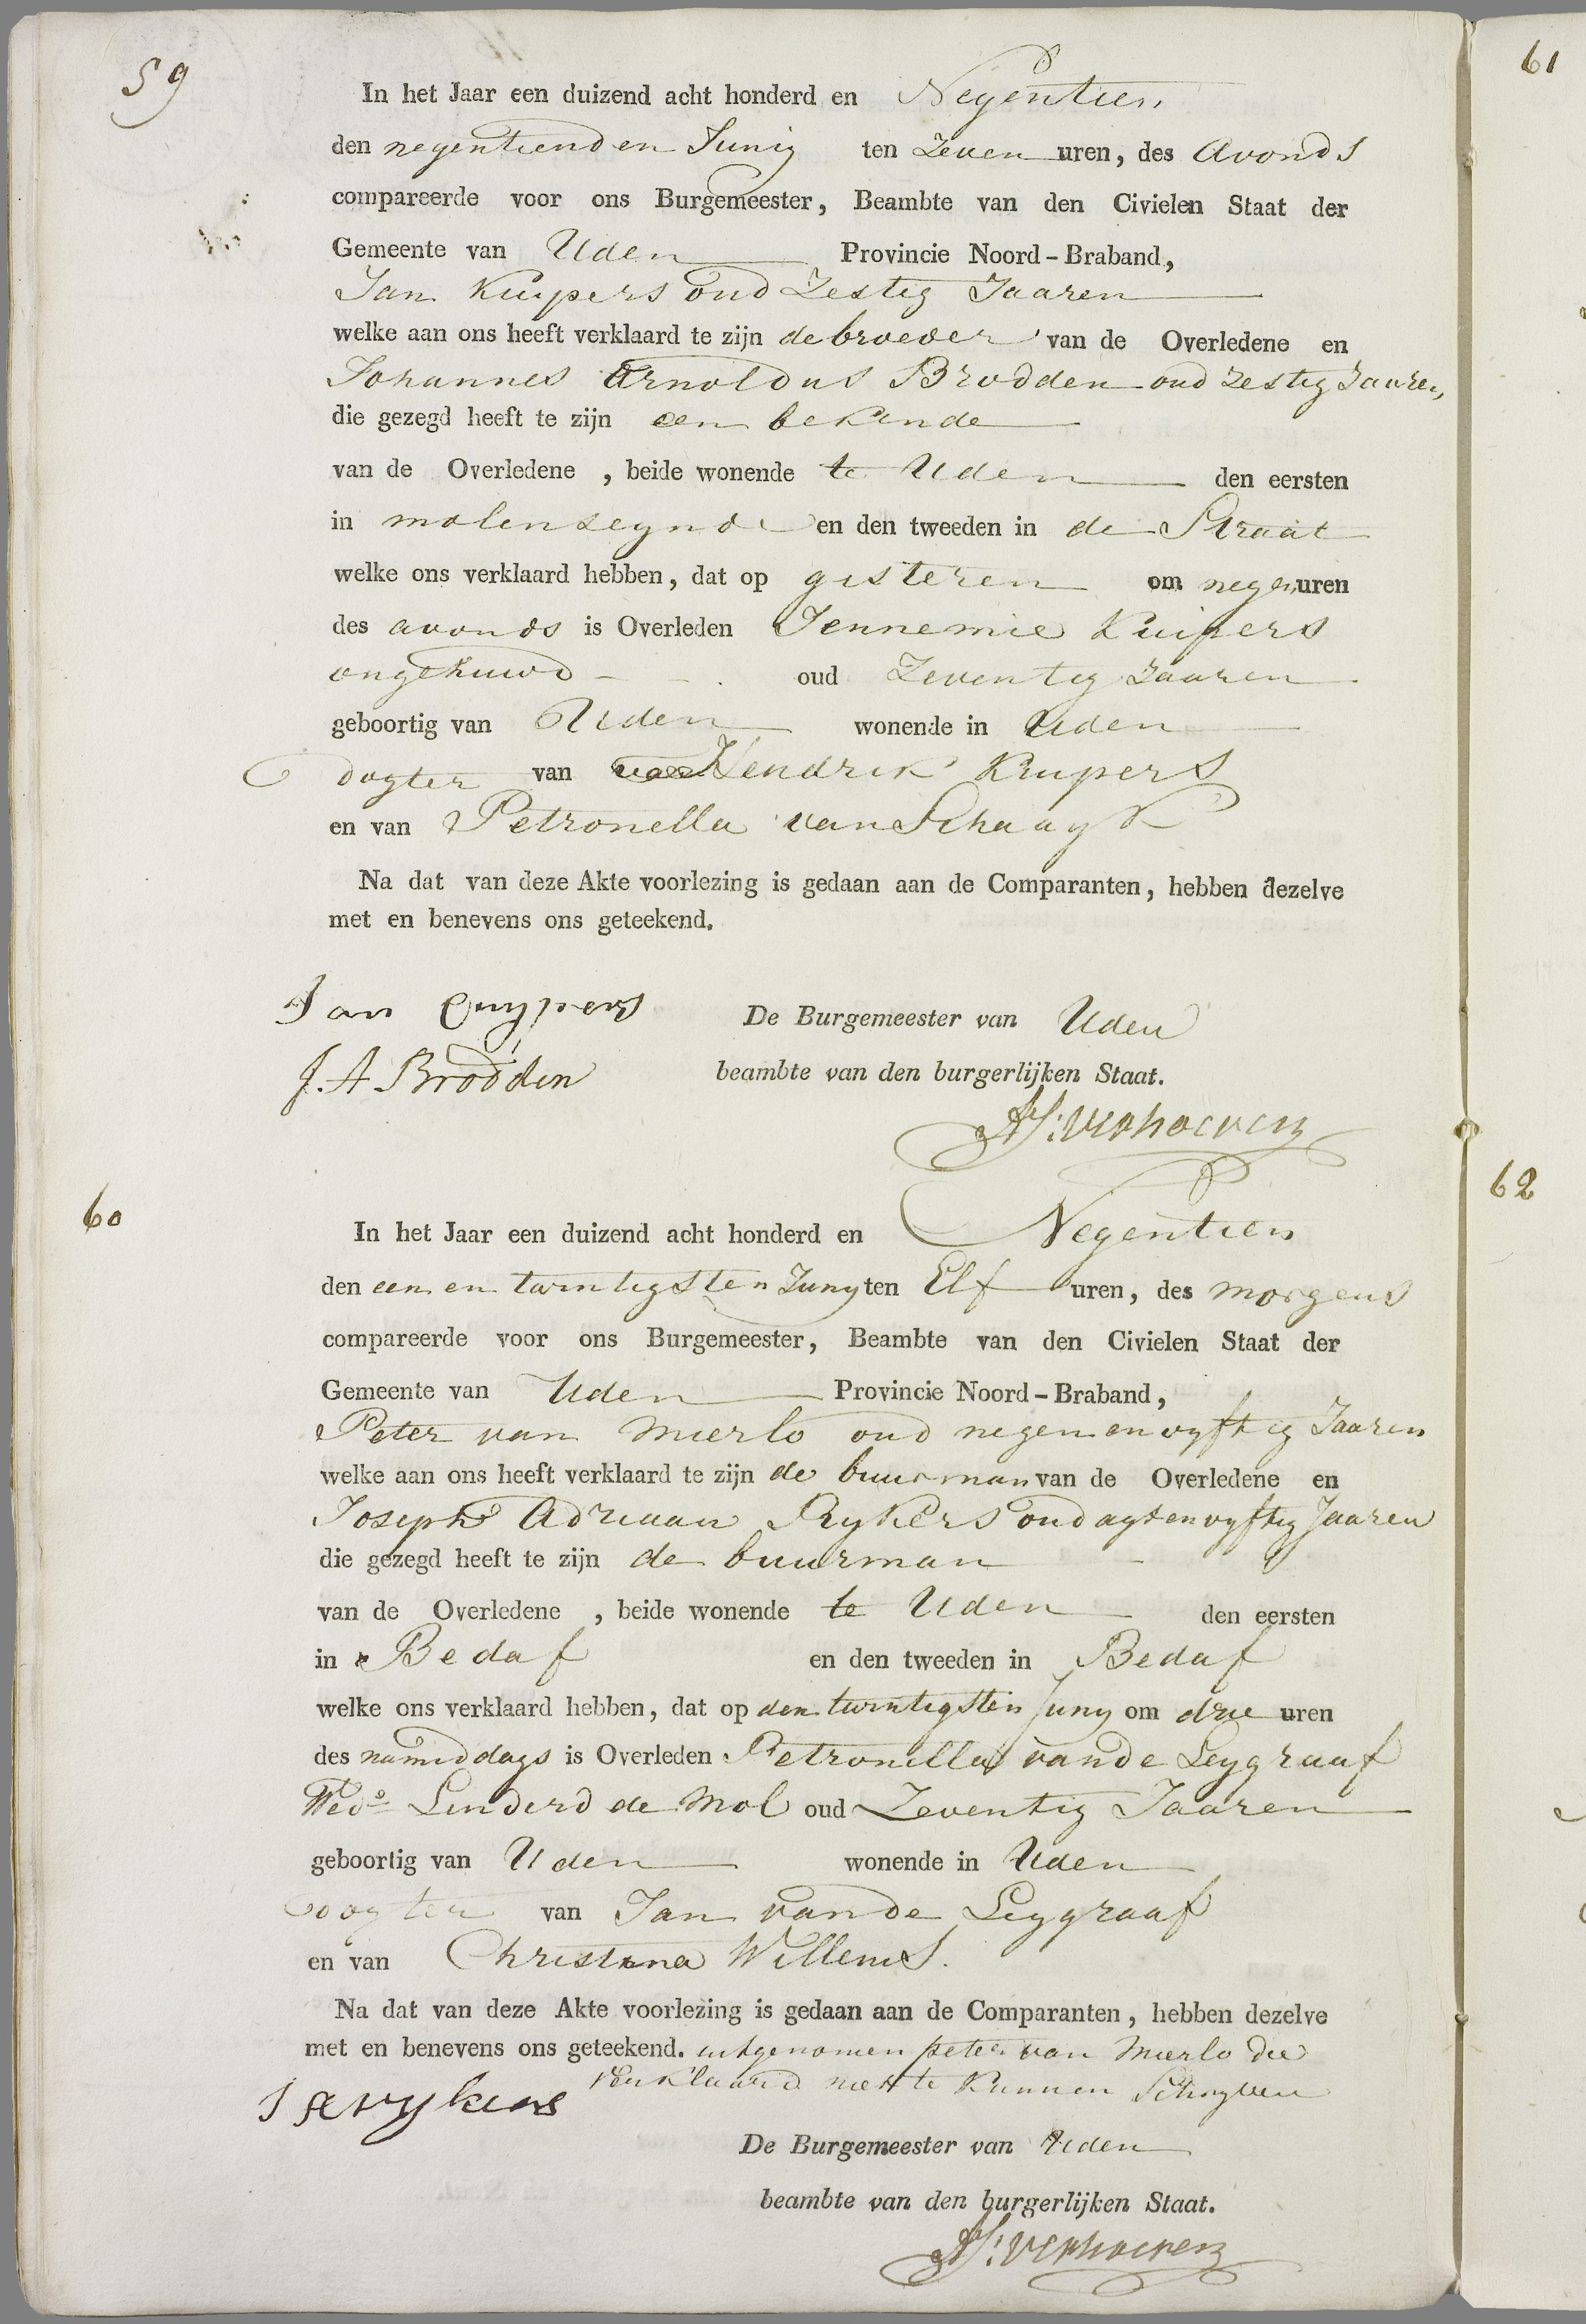 59
In het Jaar een duizend acht honderd en Negentien
den negentienden Juny ten Zeven uren, des Avonds
compareerde voor ons Burgemeester, Beambte van den Civielen Staat der
Gemeente van Uden Provincie Noord-Braband,
Jan Kuypers oud Zestig Jaaren
welke aan ons heeft verklaard te zijn de broeder van de Overledene en
Johannes Arnoldus Brodden oud Zestig Jaaren,
die gezegd heeft te zijn een bekende
van de Overledene , beide wonende te Uden den eersten
in molenseynde en den tweeden in de Straat
welke ons verklaard hebben, dat op gisteren om negen uren
des avonds is Overleden Jennemie Kuipers
ongehuwd oud Zeventig Jaaren
geboortig van Uden wonende in Uden
dogter van Hendrik Kuypers
en van Petronella van Schaayk
Na dat van deze Akte voorlezing is gedaan aan de Comparanten, hebben dezelve
met en benevens ons geteekend.
Jan Cuypers
De Burgemeester van Uden
J. A Brodden
beambte van den burgerlijken Staat.
Verhoeven
60
In het Jaar een duizend acht honderd en Negentien
den een en twintigsten Juny ten Elf uren, des morgens
compareerde voor ons Burgemeester, Beambte van den Civielen Staat der
Gemeente van Uden Provincie Noord-Braband,
Peter van Mierlo oud negen en vyftig Jaaren
welke aan ons heeft verklaard te zijn de buurman van de Overledene en
Joseph Adriaan Rykers oud agt en vyftig Jaaren
die gezegd heeft te zijn de buurman
van de Overledene , beide wonende te Uden den eersten
in Bedaf en den tweeden in Bedaf
welke ons verklaard hebben, dat op den twintigsten Juny om drie uren
des namiddags is Overleden Petronella vande Leygraaf
Wede Linderd de Mol oud Zeventig Jaaren
geboortig van Uden wonende in Uden
dogter van Jan vande Leygraaf
en van Christina Willems.
Na dat van deze Akte voorlezing is gedaan aan de Comparanten, hebben dezelve
met en benevens ons geteekend. uitgenomen peter van Mierlo die
verklaard niet te kunnen Schryven
J A rykers
De Burgemeester van Uden
beambte van den burgerlijken Staat.
Verhoeven
61
62